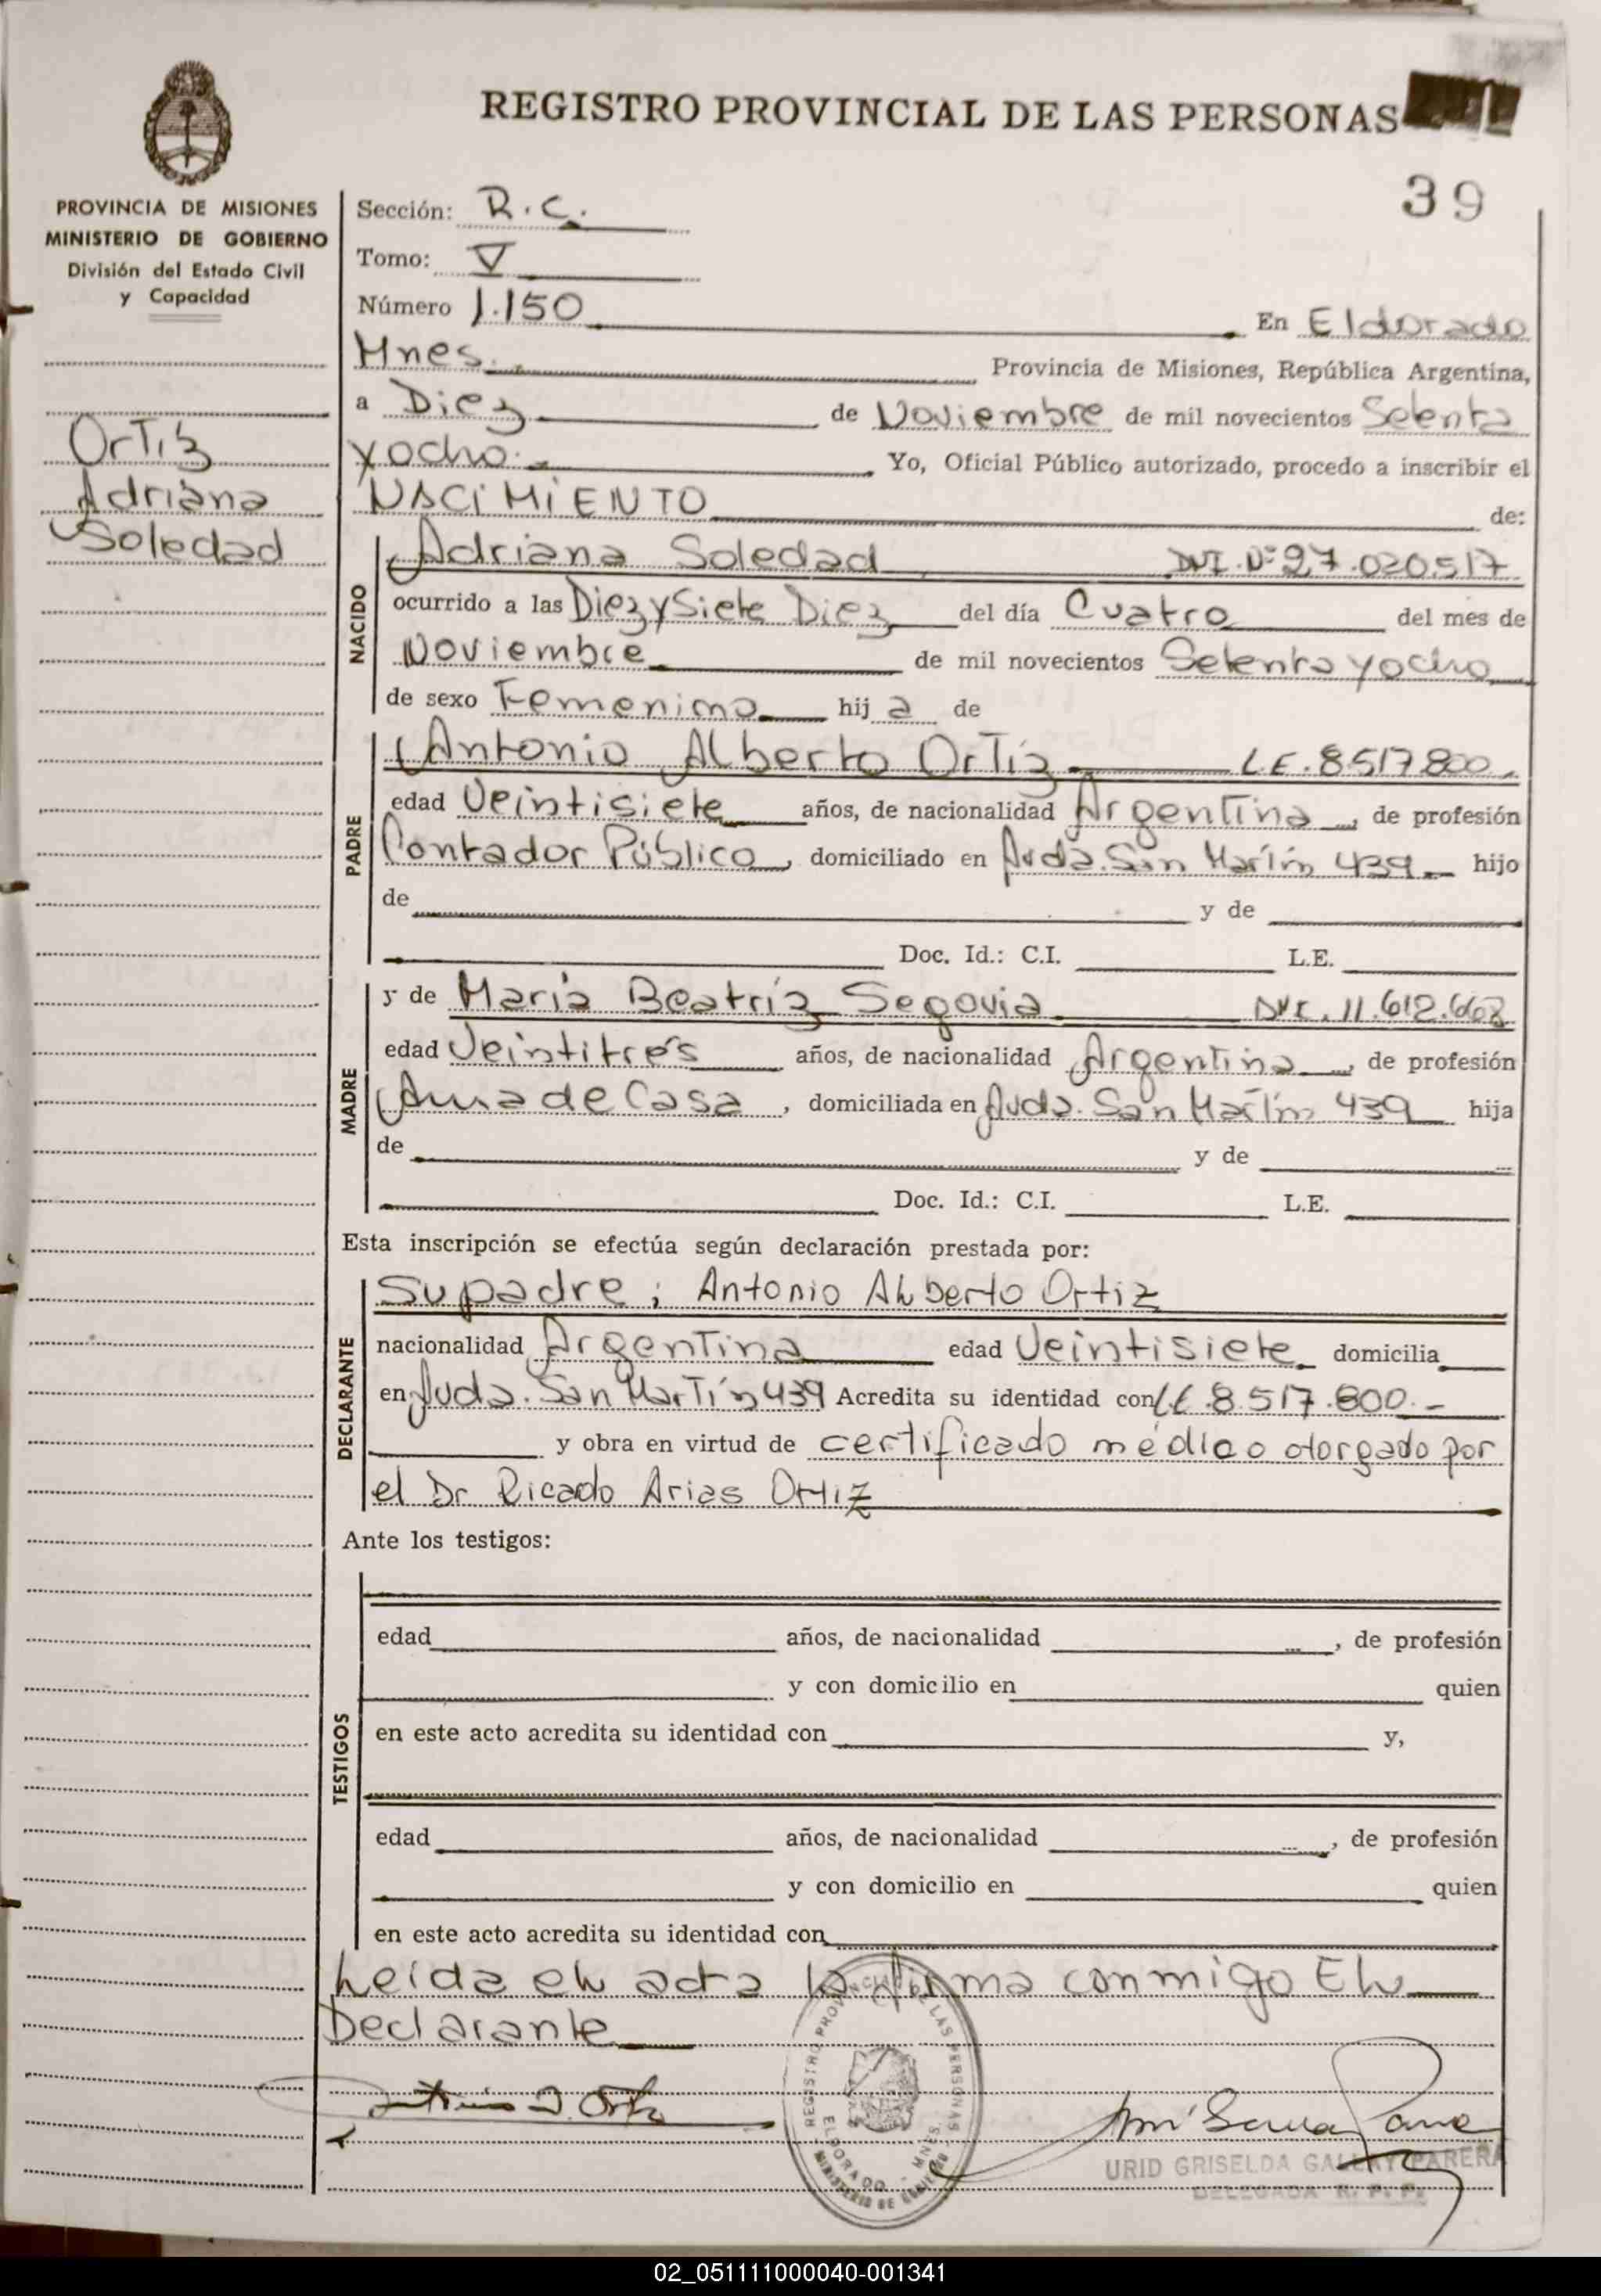 REGISTRO PROVINCIAL DE LAS PERSONAS
39
PROVINCIA DE MISIONES
MINISTERIO DE GOBIERNO
División del Estado Civil
y Capacidad
Ortiz
Adriana
Soledad
Sección: R.C.
Tomo: V
Número 1.150 En Eldorado
Mnes. Provincia de Misiones, República Argentina,
a Diez de Noviembre de mil novecientos Setenta
y ocho. Yo, Oficial Público autorizado, procedo a inscribir el
NACIMIENTO de:
NACIDO
Adriana Soledad DNI. Nº 27.020.517
ocurrido a las Diez y Siete Diez del día Cuatro del mes de
Noviembre de mil novecientos Setenta y ocho
de sexo Femenino hij a de
PADRE
Antonio Alberto Ortiz L.E. 8.517.800
edad Veintisiete años, de nacionalidad Argentina, de profesión
Contador Público, domiciliado en Avda. San Martín 439 hijo
de y de
Doc. Id.: C.I. L.E.
MADRE
y de María Beatríz Segovia 11.612.668
edad Veintitrés años, de nacionalidad Argentina, de profesión
Ama de Casa, domiciliada en Avda. San Martín 439 hija
de y de
Doc. Id.: C.I. L.E.
Esta inscripción se efectúa según declaración prestada por:
DECLARANTE
Su padre; Antonio Alberto Ortiz
nacionalidad Argentina edad Veintisiete domicilia
en Avda. San Martín 439 Acredita su identidad con L.E. 8.517.800.-
y obra en virtud de certificado médico otorgado por
el Dr Ricado Arias Ortiz
Ante los testigos:
TESTIGOS
edad años, de nacionalidad , de profesión
y con domicilio en quien
en este acto acredita su identidad con y,
edad años, de nacionalidad , de profesión
y con domicilio en quien
en este acto acredita su identidad con
Leída el acta la firma conmigo El
Declarante
REGISTRO PROVINCIAL DE LAS PERSONAS
ELDORADO - MNES.
MINISTERIO DE GOBIERNO
URID GRISELDA GALLAY PARERA
DELEGADA R. P. P.
02_051111000040-001341